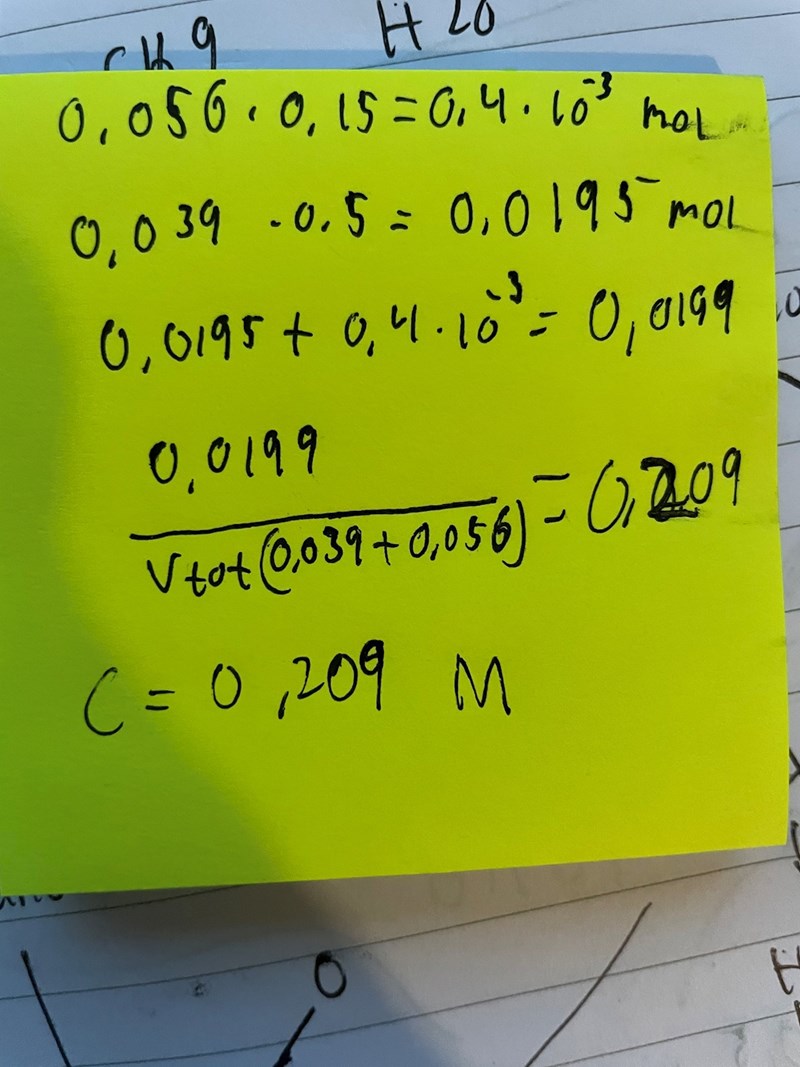 H20
0,056 · 0,15 = 0,4 · 10⁻³ mol
0,039 · 0.5 = 0,0195 mol
0,0195 + 0,4 · 10⁻³ = 0,0199
0,0199
Vtot (0,039 + 0,056) = 0,209
C = 0,209 M
O